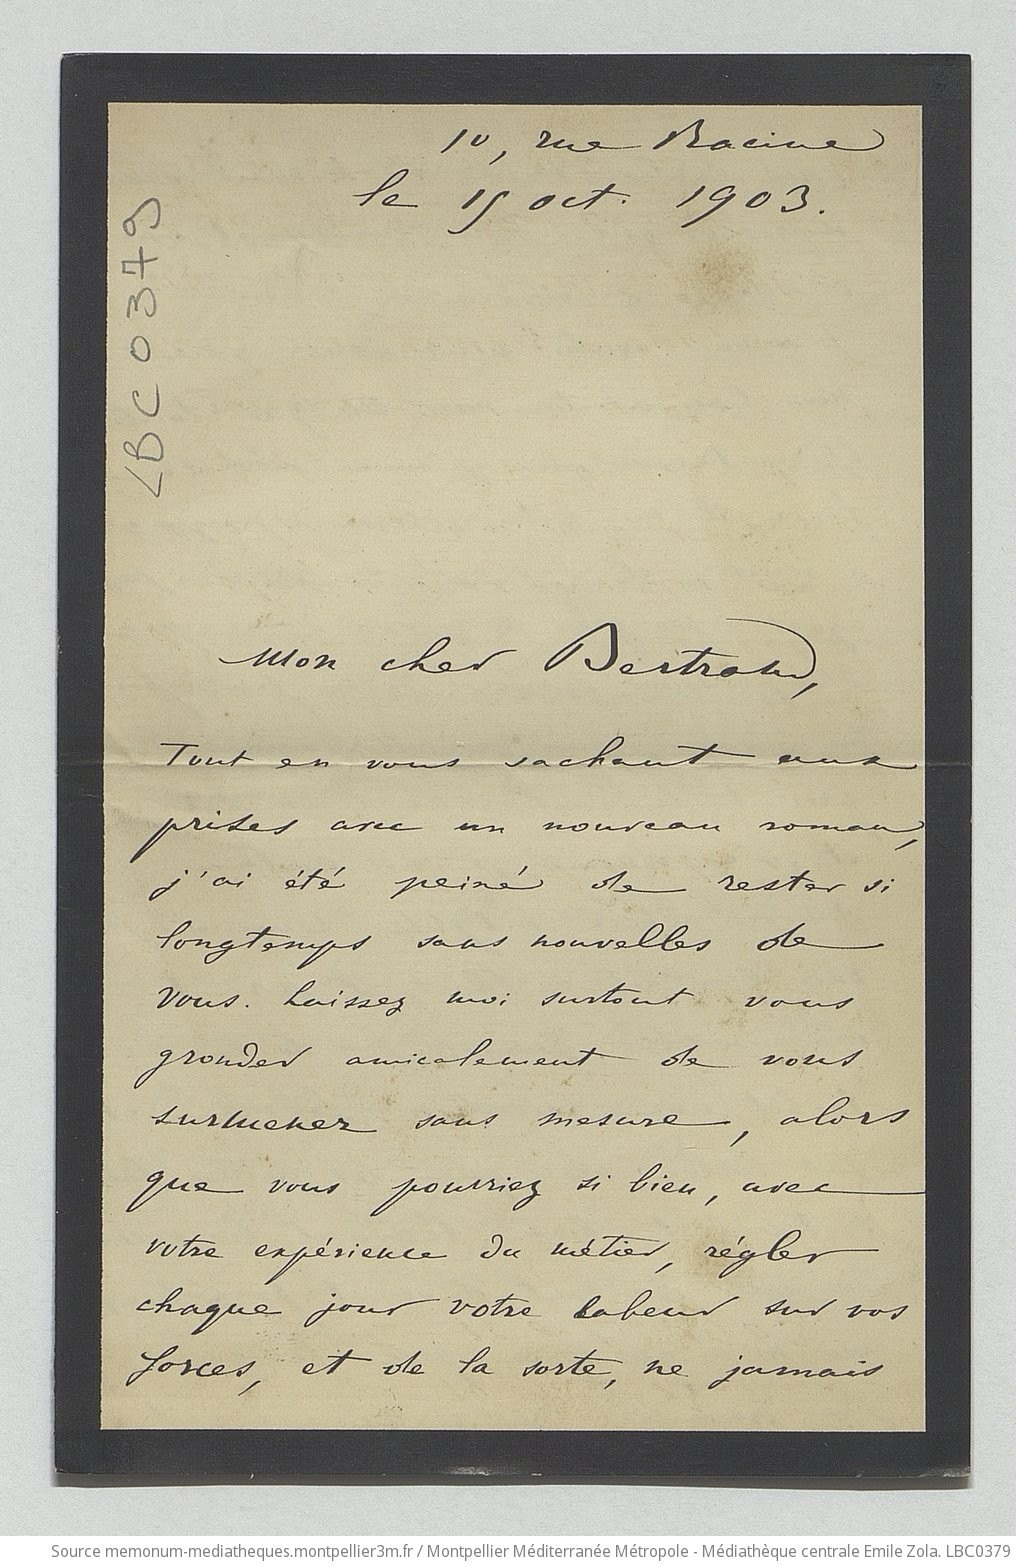 10, rue Racine
le 15 oct. 1903.
LBC0379
Mon cher Bertrand,
Tout en vous sachant aux
prises avec un nouveau roman,
j'ai été peiné de rester si
longtemps sans nouvelles de
vous. Laissez moi surtout vous
gronder amicalement de vous
surmener sans mesure, alors
que vous pourriez si bien, avec
votre expérience du métier, régler
chaque jour votre labeur sur vos
forces, et de la sorte, ne jamais
Source memonum-mediatheques.montpellier3m.fr / Montpellier Méditerranée Métropole - Médiathèque centrale Emile Zola. LBC0379